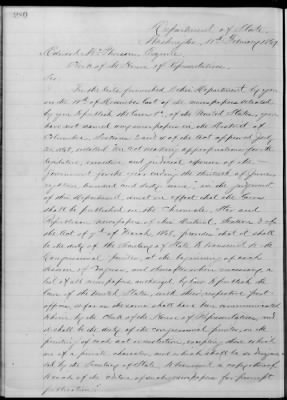 280
Department of State
Washington, 15th February 1869.
Edward McPherson Esquire
Clerk of the House of Representatives.
Sir:
In the list furnished to this Department by you
on the 10th of November last of the newspapers selected
by you to publish the laws &c. of the United States, you
have not named any newspapers in the District of
Columbia. Sections 2 and of the Act approved July
an Act making appropriations for the
legislative, executive and judicial expenses of the
government for the year ending the thirtieth of June
eighteen hundred and sixty nine, in the judgment
of this Department, must in effect that the laws
shall be published in the Chronicle, Star and
Republican newspapers of this District. Section 2 of
the Act of of March 1867, provides that it shall
be the duty of the Secretary of State to transmit to the
Congressional printer, at the beginning of each
session of Congress, and thereafter when necessary, a
list of all newspapers authorized by law to publish the
laws of the United States, with their respective post
offices, so far as the same shall have been communicated
to him by the Clerk of the House of Representatives, and
it shall be the duty of the congressional printer, on the
printing of each act or resolution, excepting those which
are of a private character, and which shall be so designated
by the Secretary of State, to transmit a copy thereof
to each of the editors of such newspapers for prompt
publication."